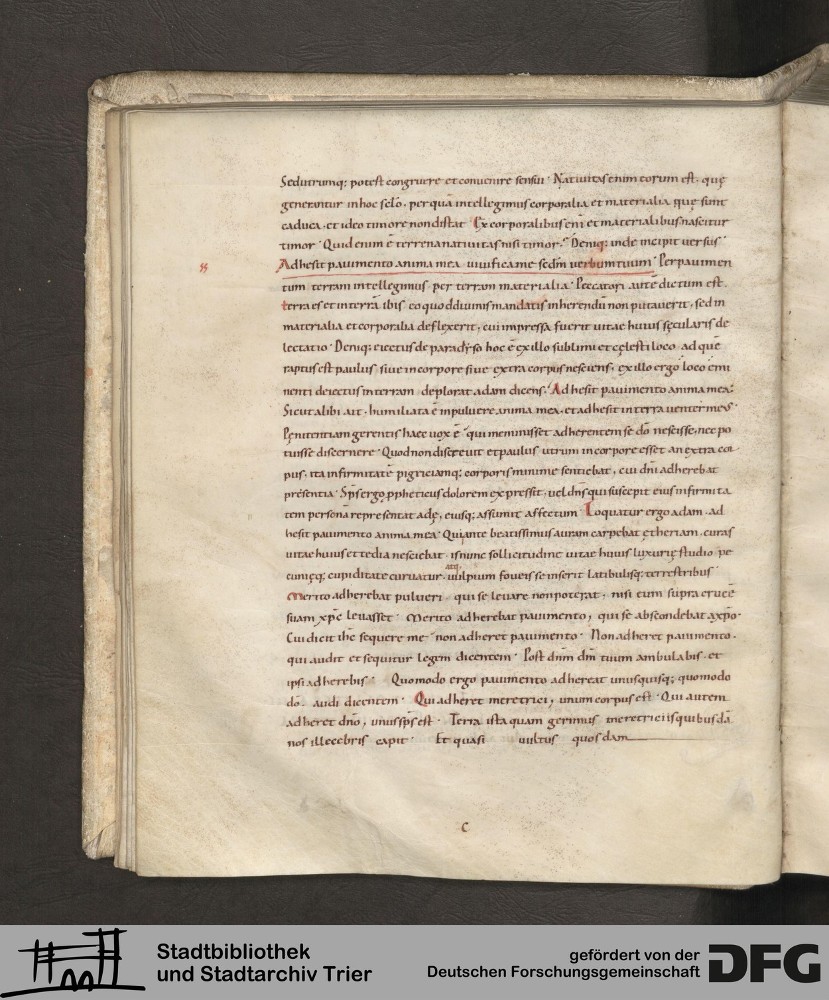 Sedutrumq; potest congruere et convenire sensui. Nativitas enim eorum est. quę
generantur in hoc sclo. per quā intellegimus corporalia et materialia quę sunt
caduca. et ideo timore non distat. Ex corporalibus enī et materialibus nascitur
timor. Quid enim ē terrena nativitas nisi timor. Deniq; inde incipit versus.
ss Adhesit pavimento anima mea vivifica me sedm verbum tuum. Per pavimen
tum terram intellegimus. per terram materialia. Peccatori autē dictum est.
terra es et in terrā ibis. eo quod divinis mandatis inherendū non putaverit, sed in
materialia et corporalia deflexerit, cui impressa fuerit vitae huius sęcularis de
lectatio. Deniq; eiectus de paradyso hoc ē ex illo sublimi et cęlesti loco ad quē
raptus est paulus. sive in corpore sive extra corpus nesciens. ex illo ergo loco emi
nenti deiectus in terram deplorat adam dicens. Adhesit pavimento anima mea.
Sicut alibi ait. humiliata ē in pulvere anima mea. et adhesit in terra venter meus.
Pęnitentiam gerentis haec vox ē. qui meminisset adherentem se dō nescisse. nec po
tuisse discernere. Quod non discrevit et paulus utrum in corpore esset an extra cor
pus. ita infirmitatē pigriciamq; corporis minime sentiebat, cui dni adherebat
pręsentia. Sps ergo ppheticus dolorem expressit. vel dns qui suscepit eius infirmita
tem personā representat adę, eiusq; assumit affectum. Loquatur ergo adam. ad
hesit pavimento anima mea. Qui ante beatissimus auram carpebat ętheriam. curas
vitae huius et tedia nesciebat. is nunc sollicitudine vitae huius luxurię studio. pe
cunięq; cupiditate curvatur. atq; vulpium foveis se inserit latibulisq; terrestribus.
Merito adherebat pulveri. qui se levare non poterat. nisi eum supra crucē
suam xpc levasset. Merito adherebat pavimento, qui se abscondebat a xpo.
Cui dicit ihc sequere me. non adheret pavimento. Non adheret pavimento.
qui audit et sequitur legem dicentem. Post dnm dm tuum ambulabis. et
ipsi adherebis. Quomodo ergo pavimento adhereat unusquisq; quomodo
dō. audi dicentem. Qui adheret meretrici, unum corpus est. Qui autem
adheret dno, unus sps est. Terra ista quam gerimus meretrici is quibusdā
nos illecebris capit. Et quasi vultus quosdam
C
Stadtbibliothek
und Stadtarchiv Trier
gefördert von der
Deutschen Forschungsgemeinschaft
DFG